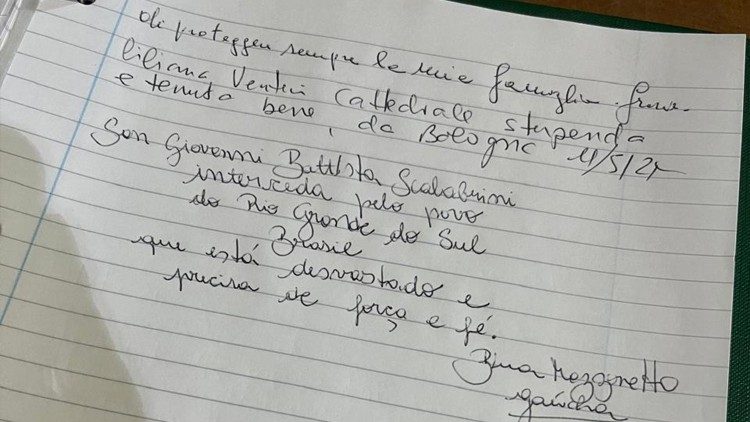 di proteggere sempre la mia famiglia.
Liliana Cattedrale stupenda
e tenuta bene, da Bologna 11/5/24
San Giovanni Battista Scalabrini
interceda pelo povo
do Rio Grande do Sul
Brasile
que está desvastado e
precisa de força e fé.
gaúcha